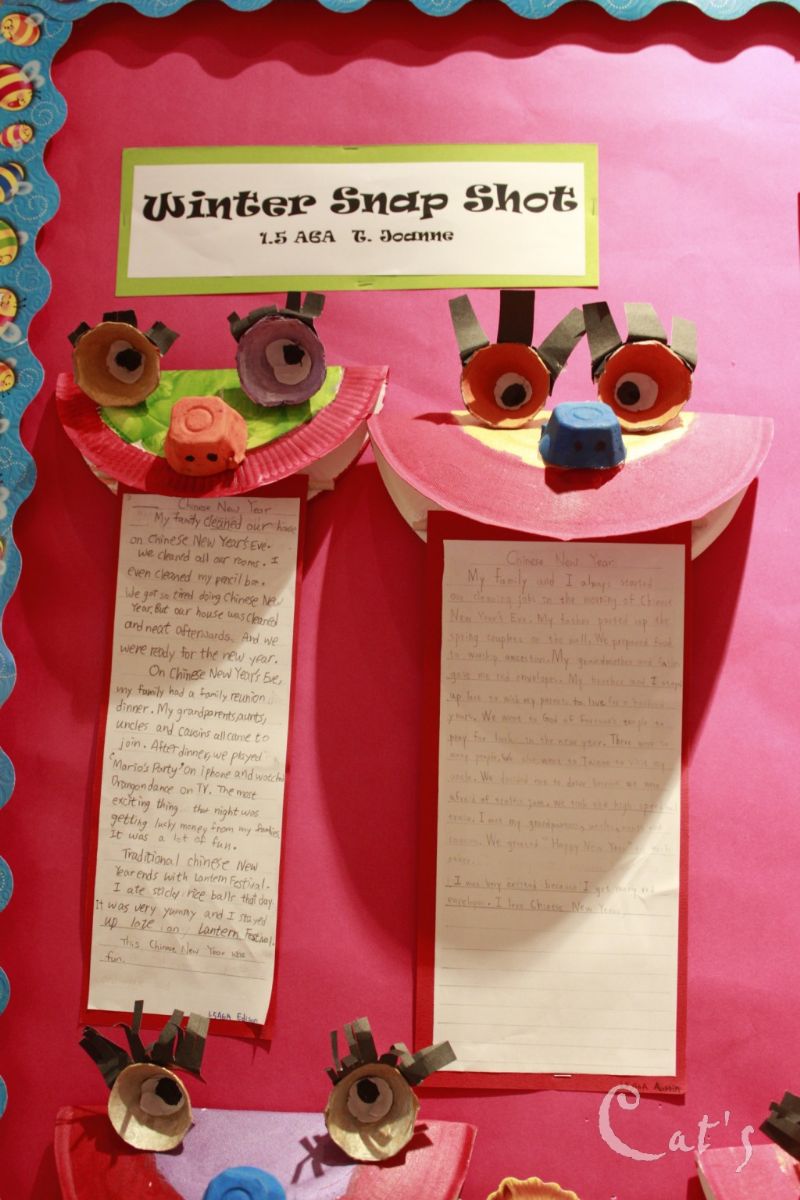 Winter Snap Shot
1.5 A&A T. Joanne
Chinese New Year
My family cleaned our house
on Chinese New Year's Eve.
We cleaned all our rooms. I
even cleaned my pencil box.
We got so tired doing Chinese New
Year. But our house was cleaned
and neat afterwards. And we
were ready for the new year.
On Chinese New Year's Eve,
my family had a family reunion
dinner. My grandparents, aunts,
uncles and cousins all came to
join. After dinner, we played
"Mario's Party" on iphone and watched
Drangon dance on TV. The most
exciting thing that night was
getting lucky money from my families.
It was a lot of fun.
Traditional chinese New
Year ends with Lantern Festival.
I ate sticky rice balls that day.
It was very yummy and I stayed
up late on Lantern Festival.
This Chinese New Year was
fun.
Edison
Chinese New Year
My family and I always started
our cleaning jobs in the morning of Chinese
New Year's Eve. My father pasted up the
spring couplets on the wall. We prepared food
to worship ancestors. My grandmother and father
gave me red envelopes. My brother and I stayed
up late to wish my parents to live for a hundred
years. We went to God of Fortune's temple to
pray for luck in the new year. There were so
many people. We also went to Tainan to visit my
uncle. We decided not to drive because we were
afraid of traffic jam. We took the high speed rail
train. I met my grandparents, uncles, aunts and
cousins. We greeted "Happy New Year" to each
other.
I was very excited because I got many red
envelopes. I love Chinese New Year.
Austin
Cat's